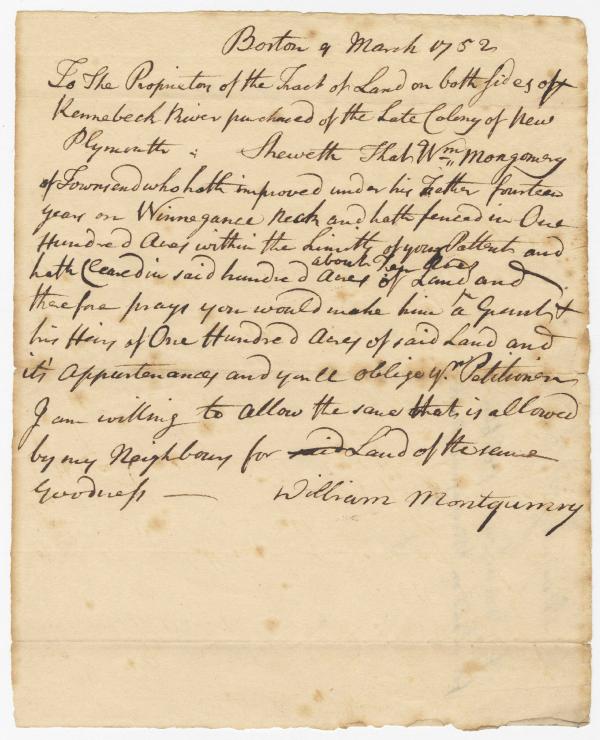 Boston 9 March 1752
To The Proprietors of the Tract of Land on both Sides of
Kennebeck River purchased of the Late Colony of New
Plymouth : Sheweth That Wm Montgomery
of Townsend who hath improved under his Father fourteen
years on Winnegance Neck and hath fenced in One
Hundred Acres within the Limitts of your Pattent and
hath Cleared in said hundred Acres about Ten Acres of Land and
therefore prays you would make him a Grant &
his Heirs of One Hundred Acres of said Land and
it's Appurtenances and you'll oblige yr Petitioner
I am willing to allow the same that is allowed
by my Neighbours for said Land of the same
Goodness — William Montgumry